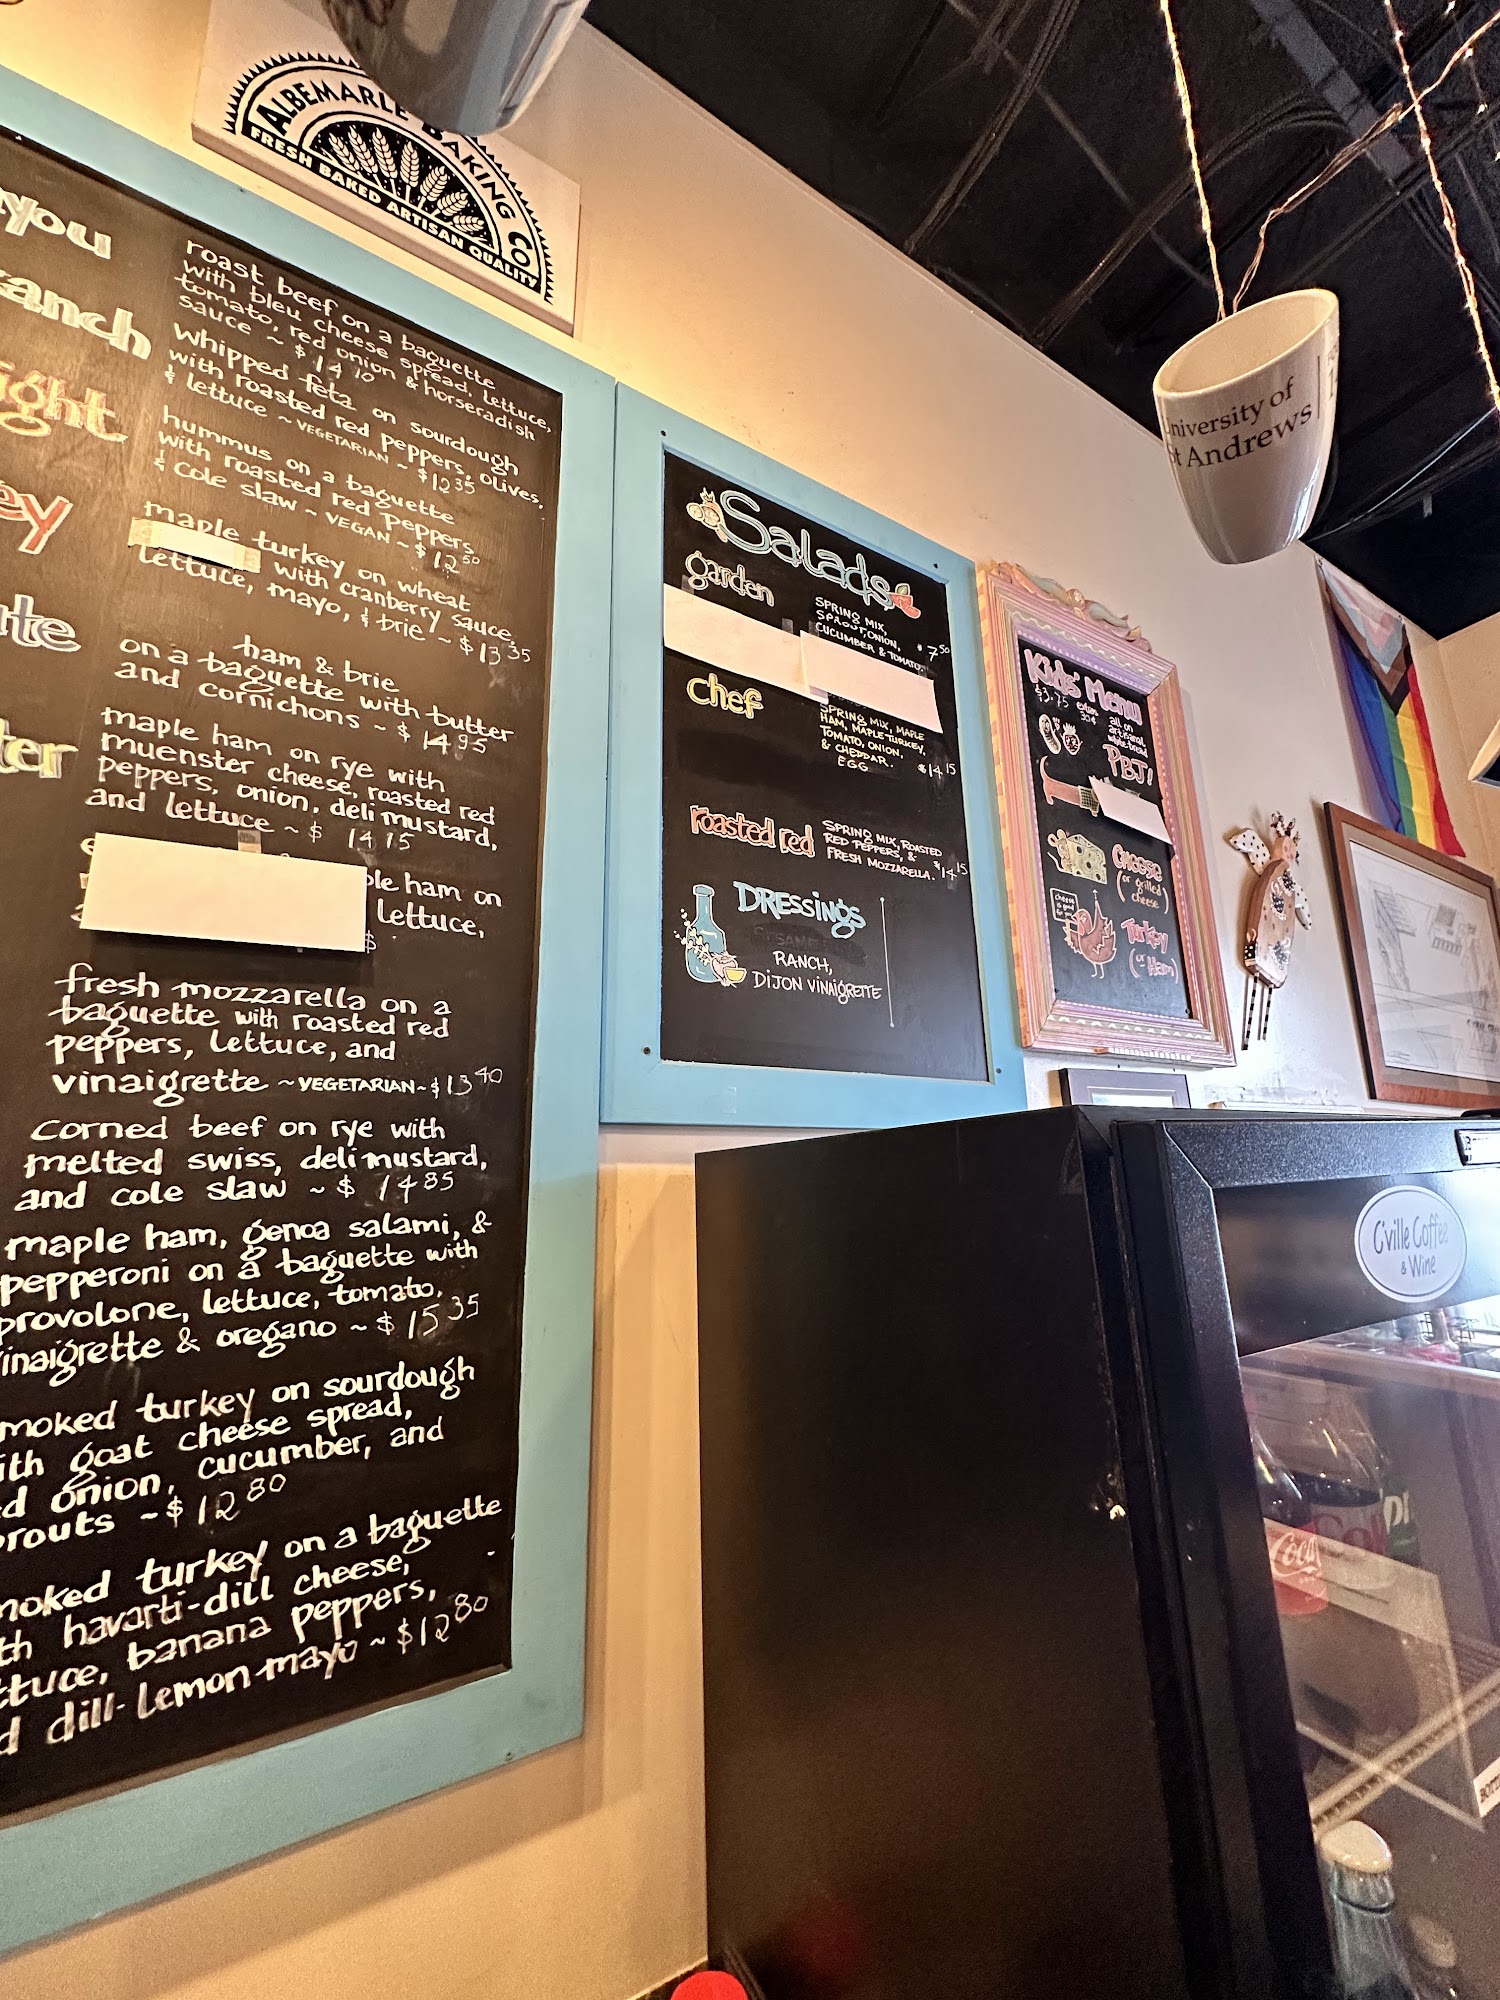 ALBEMARLE BAKING CO
FRESH BAKED ARTISAN QUALITY
you
ranch
ight
ey
te
ter
roast beef on a baguette
with bleu cheese spread, lettuce,
tomato, red onion & horseradish
sauce ~ $ 14 10
whipped feta on sourdough
with roasted red peppers, olives,
& lettuce ~ VEGETARIAN ~ $12 35
hummus on a baguette
with roasted red peppers
& cole slaw ~ VEGAN ~ $12 50
maple turkey on wheat
with cranberry sauce,
lettuce, mayo, & brie ~ $13 35
ham & brie
on a baguette with butter
and cornichons ~ $ 14 95
maple ham on rye with
muenster cheese, roasted red
peppers, onion, deli mustard,
and lettuce ~ $ 14 15
ple ham on
lettuce,
$
fresh mozzarella on a
baguette with roasted red
peppers, lettuce, and
vinaigrette ~ VEGETARIAN ~ $13 40
corned beef on rye with
melted swiss, deli mustard,
and cole slaw ~ $ 14 85
maple ham, genoa salami, &
pepperoni on a baguette with
provolone, lettuce, tomato,
inaigrette & oregano ~ $ 15 35
moked turkey on sourdough
ith goat cheese spread,
d onion, cucumber, and
prouts ~ $ 12 80
moked turkey on a baguette
th havarti-dill cheese,
ttuce, banana peppers,
d dill-lemon-mayo ~ $12 80
Salads
garden
SPRING MIX,
SPROUT, ONION,
CUCUMBER & TOMATO.
$ 7 50
chef
SPRING MIX, MAPLE
HAM, MAPLE-TURKEY,
TOMATO, ONION,
& CHEDDAR.
EGG
$14 15
roasted red
SPRING MIX, ROASTED
RED PEPPERS, &
FRESH MOZZARELLA.
$14 15
DRESSINGS
RANCH,
DIJON VINAIGRETTE
Kids' Menu
$3.75
all on
artisanal
white bread
PBJ!
CHEESE
(or grilled
cheese)
Cheese
is good
for you
Turkey
(or Ham)
University of
St Andrews
C'ville Coffee
& Wine
Coca